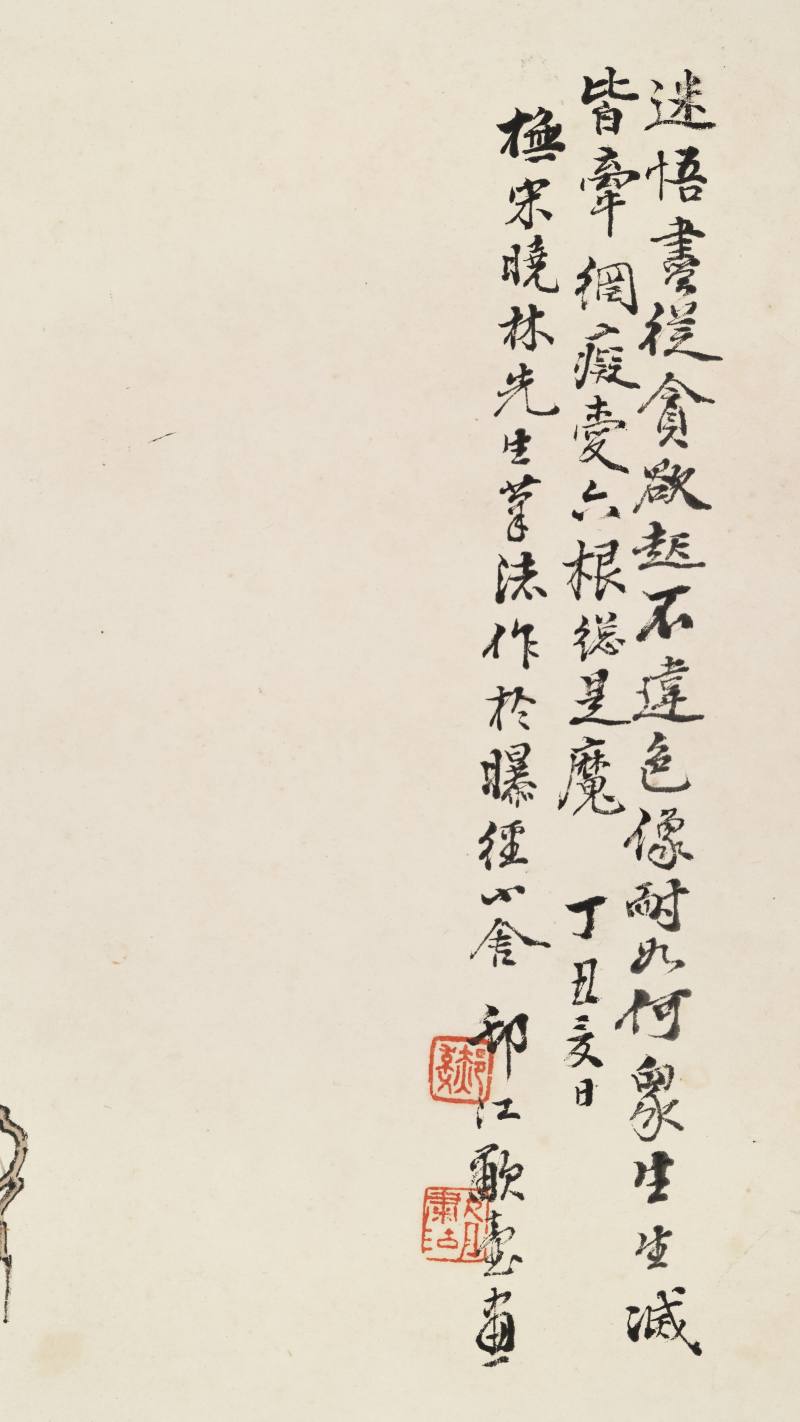 迷悟盡從貪欲起不違色像耐如何眾生生滅
皆牽網癡愛六根總是魔 丁丑夏日
橅宋曉林先生筆法作於曝徑小舍 邗江 壺畫